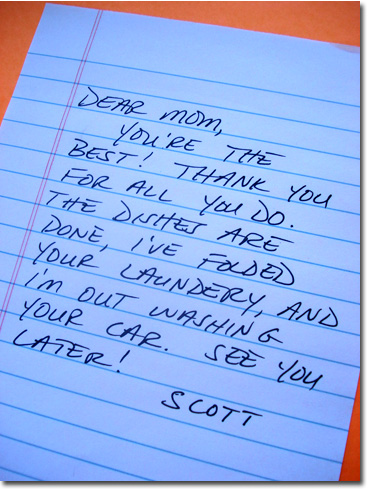 DEAR MOM,
YOU'RE THE
BEST! THANK YOU
FOR ALL YOU DO.
THE DISHES ARE
DONE, I'VE FOLDED
YOUR LAUNDERY, AND
I'M OUT WASHING
YOUR CAR. SEE YOU
LATER!
SCOTT